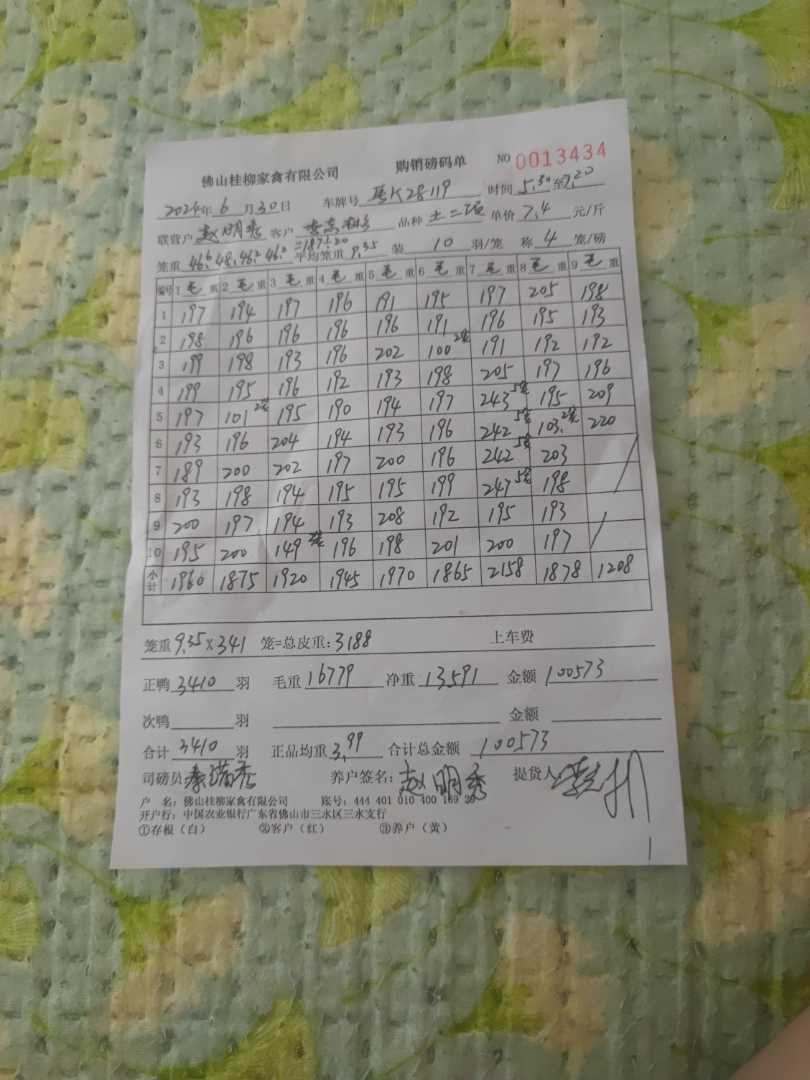 佛山桂柳家禽有限公司 购销磅码单 NO 0013434
2024年 6 月 30 日 车牌号 K28119 时间 5.30 至 7.20
联营户 赵明秀 客户 品种 土二 单价 7.4 元/斤
笼重 46.6 48. 46.2 46.2 =187÷20 平均笼重 9.35 装 10 羽/笼 称 4 笼/磅
编号 1 毛 重 2 毛 重 3 毛 重 4 毛 重 5 毛 重 6 毛 重 7 毛 重 8 毛 重 9 毛 重
1 197 194 197 196 191 195 197 205 198
2 198 196 196 196 196 191 196 195 193
3 199 198 193 196 202 100 2笼 191 192 192
4 199 195 196 192 193 198 205 197 196
5 197 101 2笼 195 190 194 197 243 5笼 195 209
6 193 196 204 194 193 196 242 5笼 103. 2笼 220
7 189 200 202 197 200 196 242 5笼 203
8 193 198 194 195 195 199 247 5笼 198
9 200 197 194 193 208 192 195 193
10 195 200 149 3笼 196 198 201 200 197
小计 1960 1875 1920 1945 1970 1865 2158 1878 1208
笼重 9.35 × 341 笼=总皮重: 3188 上车费
正鸭 3410 羽 毛重 16779 净重 13591 金额 100573
次鸭 羽 金额
合计 3410 羽 正品均重 3.99 合计总金额 100573
司磅员 秦 秀 养户签名: 赵明秀 提货人
户 名: 佛山桂柳家禽有限公司 账号: 444 401 010 400 169 20
开户行: 中国农业银行广东省佛山市三水区三水支行
①存根(白) ②客户(红) ③养户(黄)